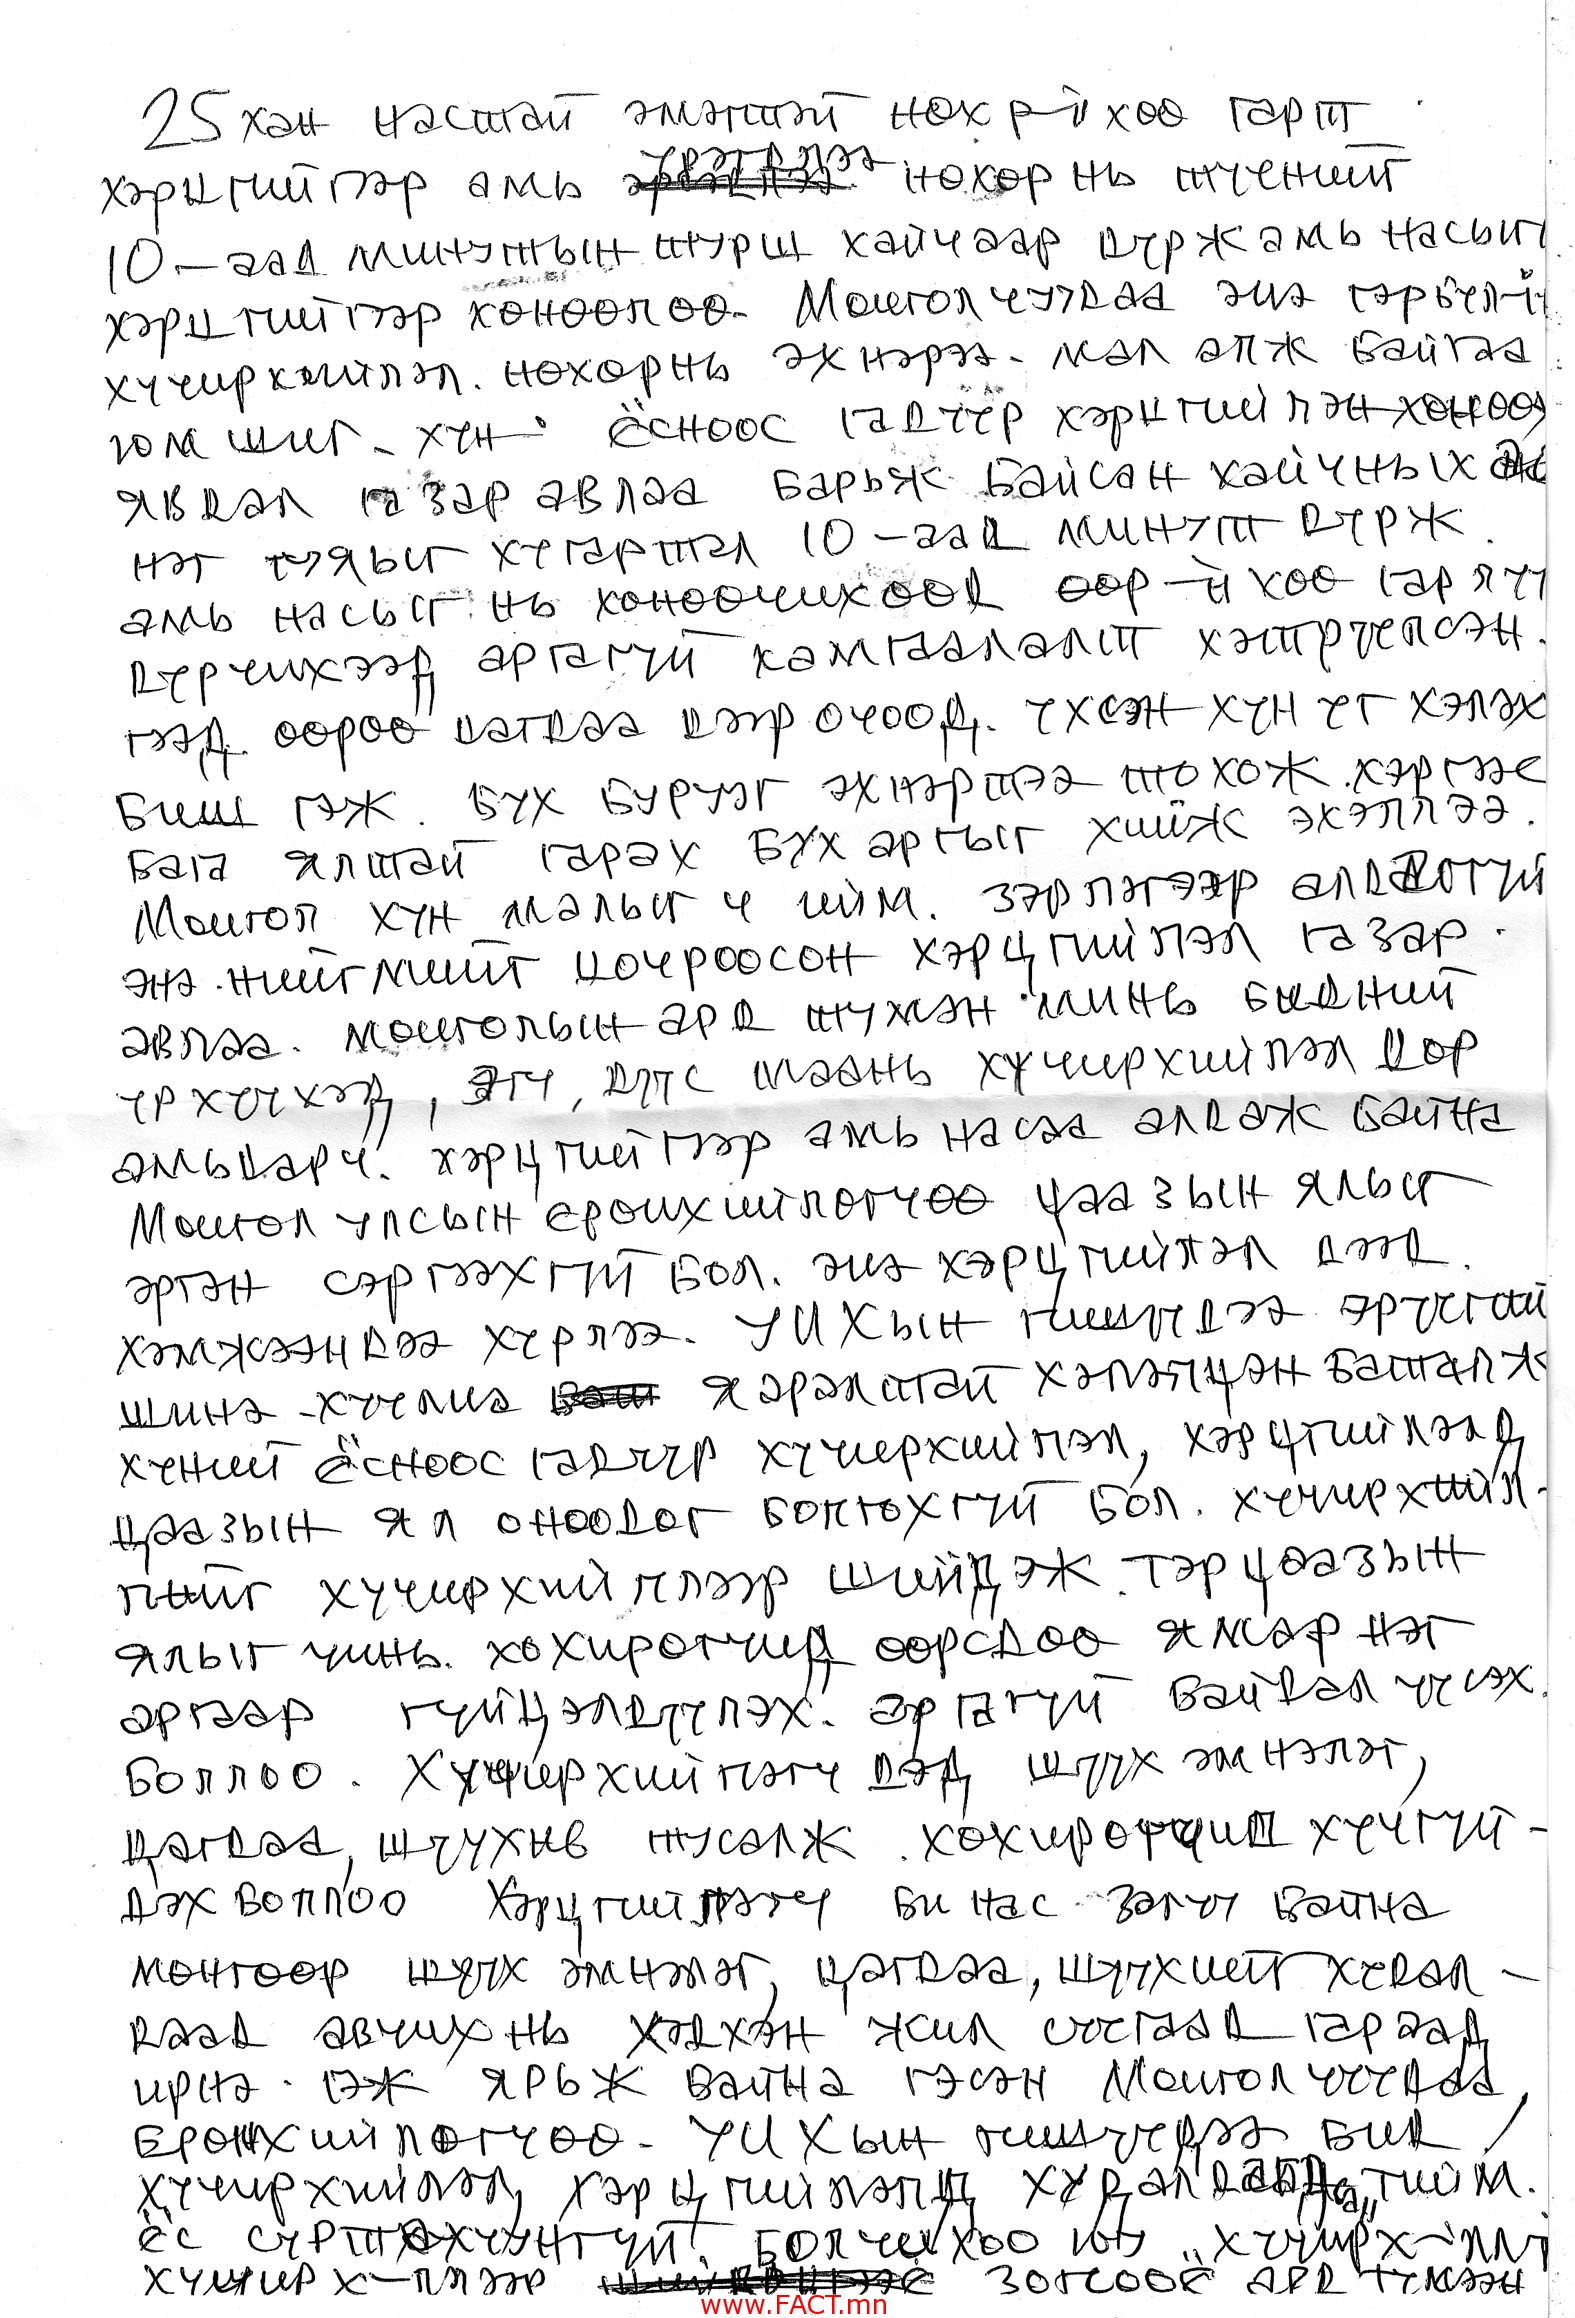 25 хан настай эмэгтэй нөхр-йхөө гарт
хэрцгийгээр амь үрэгдлээ нөхөр нь түүнийг
10-аад минутын турш хайчаар дүрж амь насыг
хэрцгийгээр хөнөөлөө. Монголчуудаа энэ гэрбүл-й
хүчирхийлэл. нөхөр нь эхнэрээ. мал алж байгаа
юм шиг. хүн ёсноос гадуур хэрцгийлэн хөнөөх
явдал газар авлаа барьж байсан хайчных
нэг туяыг хугартал 10-аад минут дүрж.
амь насыг нь хөнөөчихөөд өөр-й хөө гар луу
дүрчихээд, аргагүй хамгаалалт хэтрүүлсэн.
гэд. өөрөө цагдаа дээр очоод. үхсэн хүн үг хэлэх
биш гэж. бүх бурууг эхнэртээ тохож. хэргээс
бага ялтай гарах бүх аргыг хийж эхэллээ.
Монгол хүн малыг ч ийм. зэрлэгээр алдаггүй
энэ. нийгмийг цочроосон хэрцгийлэл газар.
авлаа. монголын ард түмэн минь бидний
үр хүүхэд, эгч, дүүс маань хүчирхийлэл дор
амьдарч. хэрцгийгээр амь насаа алдаж байна
Монгол улсын ерөнхийлөгчөө цаазын ялыг
эргэн сэргээхгүй бол. энэ хэрцгийлэл дээд.
хэмжээндээ хүрлээ. УИХын гишүүдээ эрүүгийн
шинэ хуулиа яаралтай хэлэлцэн баталж
хүний ёсноос гадуур хүчирхийлэл, хэрцгийлэлд
цаазын ял оноодог болгохгүй бол. хүчирхийл-
лийг хүчирхийллээр шийдэж. тэр цаазын
ялыг чинь. хохирогчид өөрсдөө ямар нэг
аргаар гүйцэлдүүлэх. аргагүй байдал үүсэх.
боллоо. Хүчирхийлэгч дэд шүүх эмнэлэг,
цагдаа, шүүхнв тусалж. хохирогчид хүчгүй-
дэх боллоо Хэрцгийлэгч би нас залуу байна
мөнгөөр шүүх эмнэлэг, цагдаа, шүүхийг худал-
даад авчих нь хэдхэн жил суугаад гараад
ирнэ. гэж ярьж байна гэсэн Монголчуудаа,
Ерөнхийлөгчөө. УИХын гишүүдээ бид /
хүчирхийлэл, хэрцгийлэлд тийм.
ёс суртахуунгүй болчихоо юу "хүчирх-йлл
хүчирх-ллээр зогсоое ард түмээн
www.FACT.mn